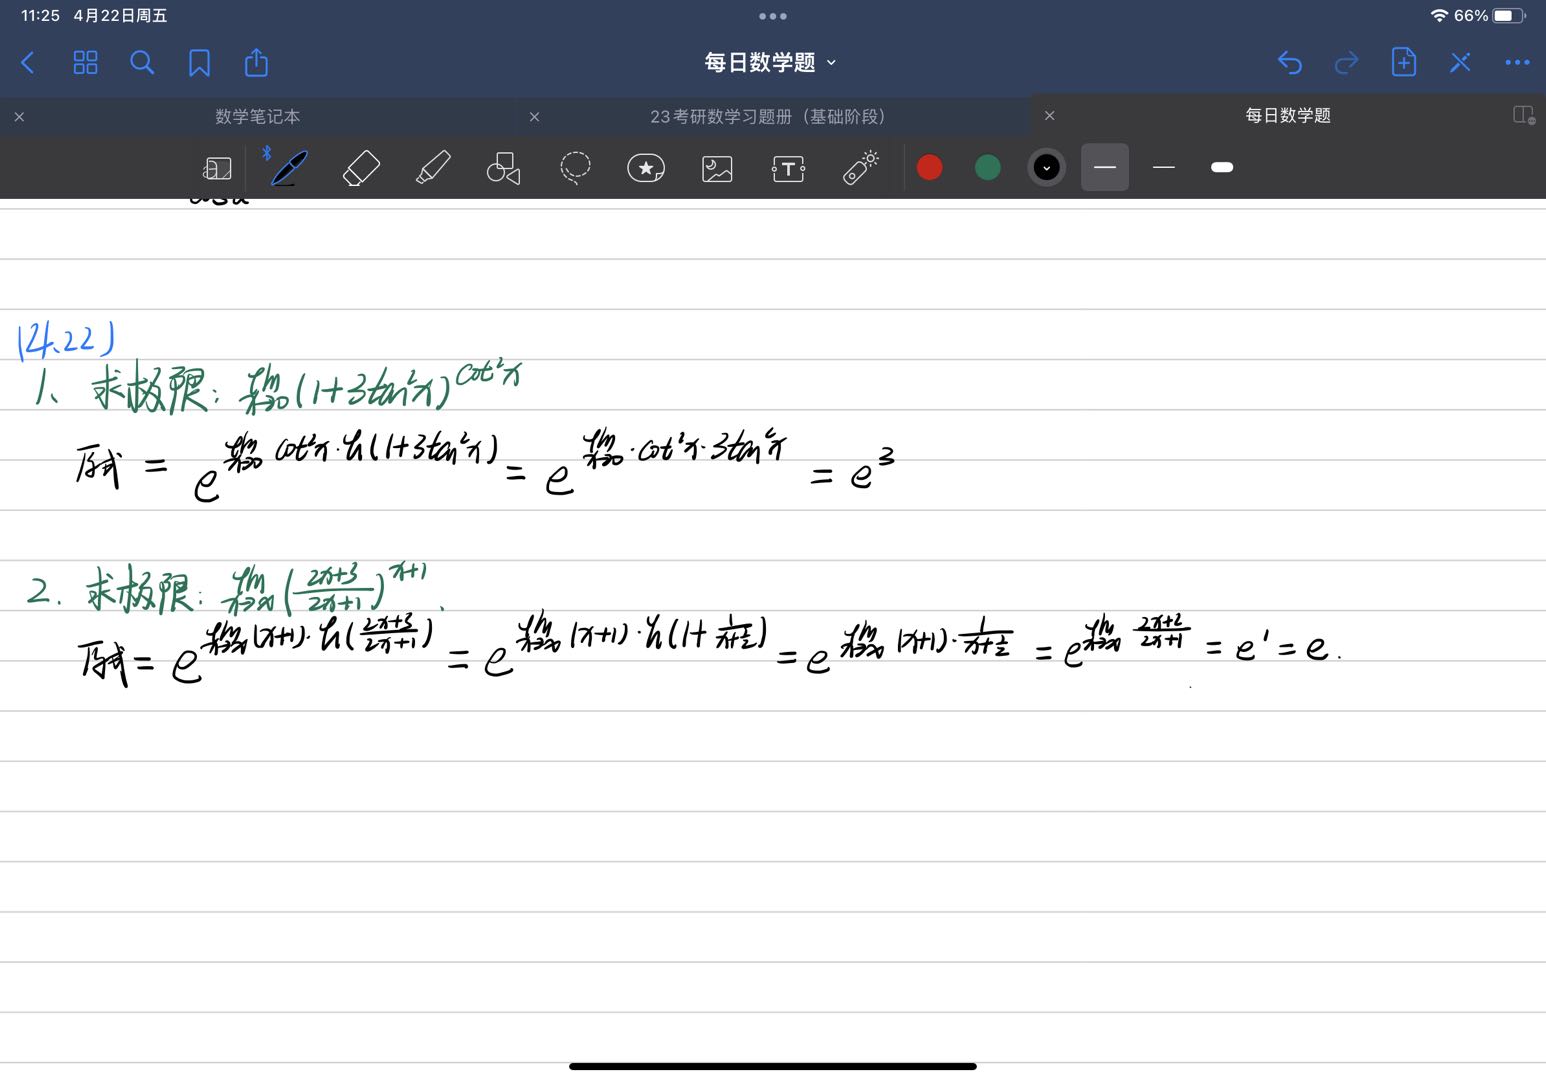 11:25 4月22日周五
66%
每日数学题
数学笔记本 23考研数学习题册（基础阶段） 每日数学题
(4.22)
1、求极限: lim x→0 (1+3tan²x)^cot²x
原式 = e^(lim x→0 cot²x·ln(1+3tan²x)) = e^(lim x→0 ·cot²x·3tan²x) = e³
2. 求极限: lim x→∞ ((2x+3)/(2x+1))^(x+1).
原式 = e^(lim x→∞ (x+1)·ln((2x+3)/(2x+1))) = e^(lim x→∞ (x+1)·ln(1+1/(x+1/2))) = e^(lim x→∞ (x+1)·1/(x+1/2)) = e^(lim x→∞ (2x+2)/(2x+1)) = e¹ = e.